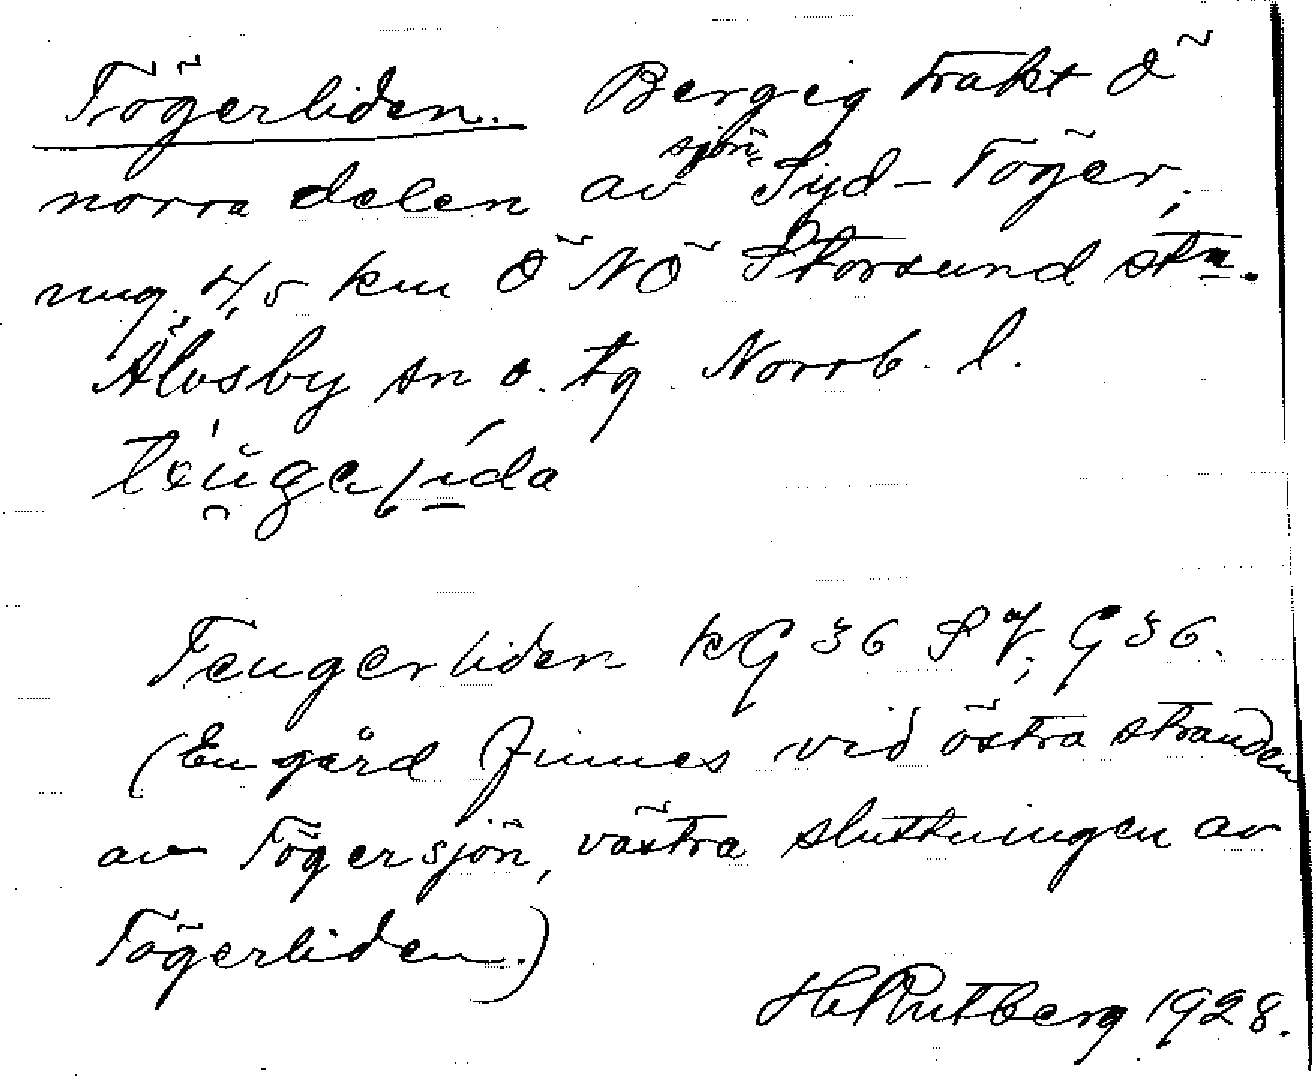 Tögerliden. Bergig trakt Ö
norra delen av sjön Syd-Töger,
ung. 4,5 km Ö NÖ Storsund stn.
Älvsby sn o. tg. Norrb. l.
Teugerliden kG 36 SV, G 36.
(En gård finnes vid östra stranden
av Tögersjön, västra sluttningen av
Tögerliden.)
H. Rutberg 1928.